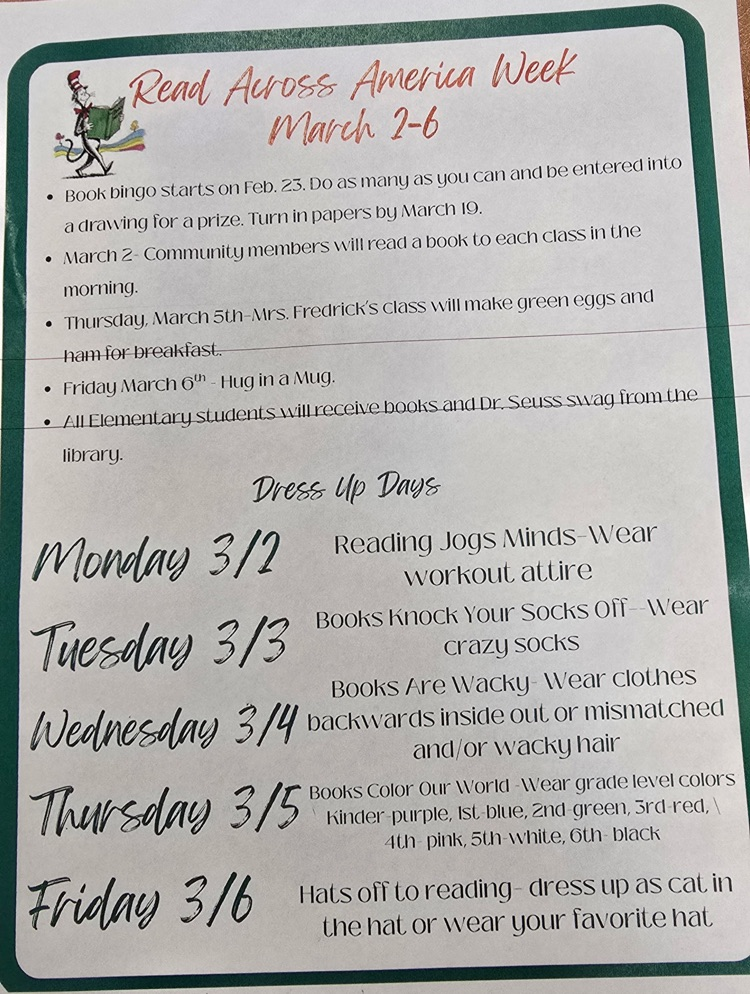 Read Across America Week
March 2-6
• Book bingo starts on Feb. 23. Do as many as you can and be entered into
a drawing for a prize. Turn in papers by March 19.
• March 2- Community members will read a book to each class in the
morning.
• Thursday, March 5th-Mrs. Fredrick's class will make green eggs and
ham for breakfast.
• Friday March 6th - Hug in a Mug.
• All Elementary students will receive books and Dr. Seuss swag from the
library.
Dress Up Days
Monday 3/2
Reading Jogs Minds-Wear
workout attire
Tuesday 3/3
Books Knock Your Socks Off--Wear
crazy socks
Wednesday 3/4
Books Are Wacky- Wear clothes
backwards inside out or mismatched
and/or wacky hair
Thursday 3/5
Books Color Our World -Wear grade level colors
\ Kinder-purple, 1st-blue, 2nd-green, 3rd-red, \
4th- pink, 5th-white, 6th- black
Friday 3/6
Hats off to reading- dress up as cat in
the hat or wear your favorite hat